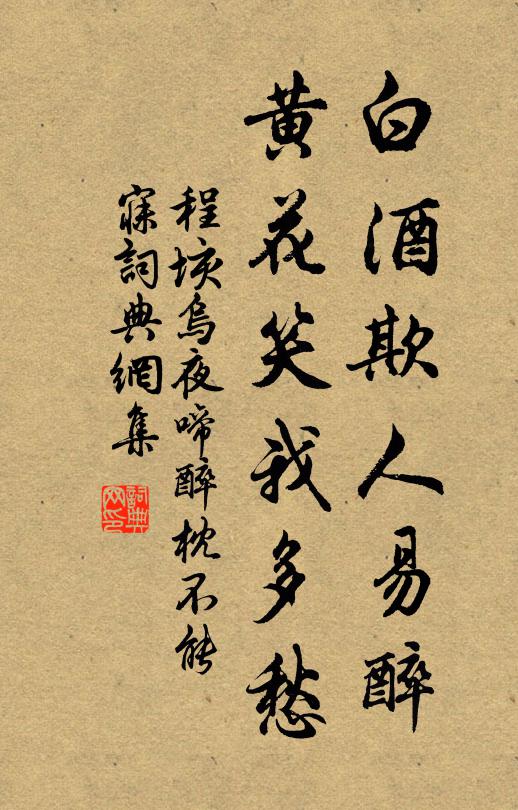 白酒欺人易醉
黄花笑我多愁
程垓烏夜啼醉枕不能
寐詞典網集
詞典
网印